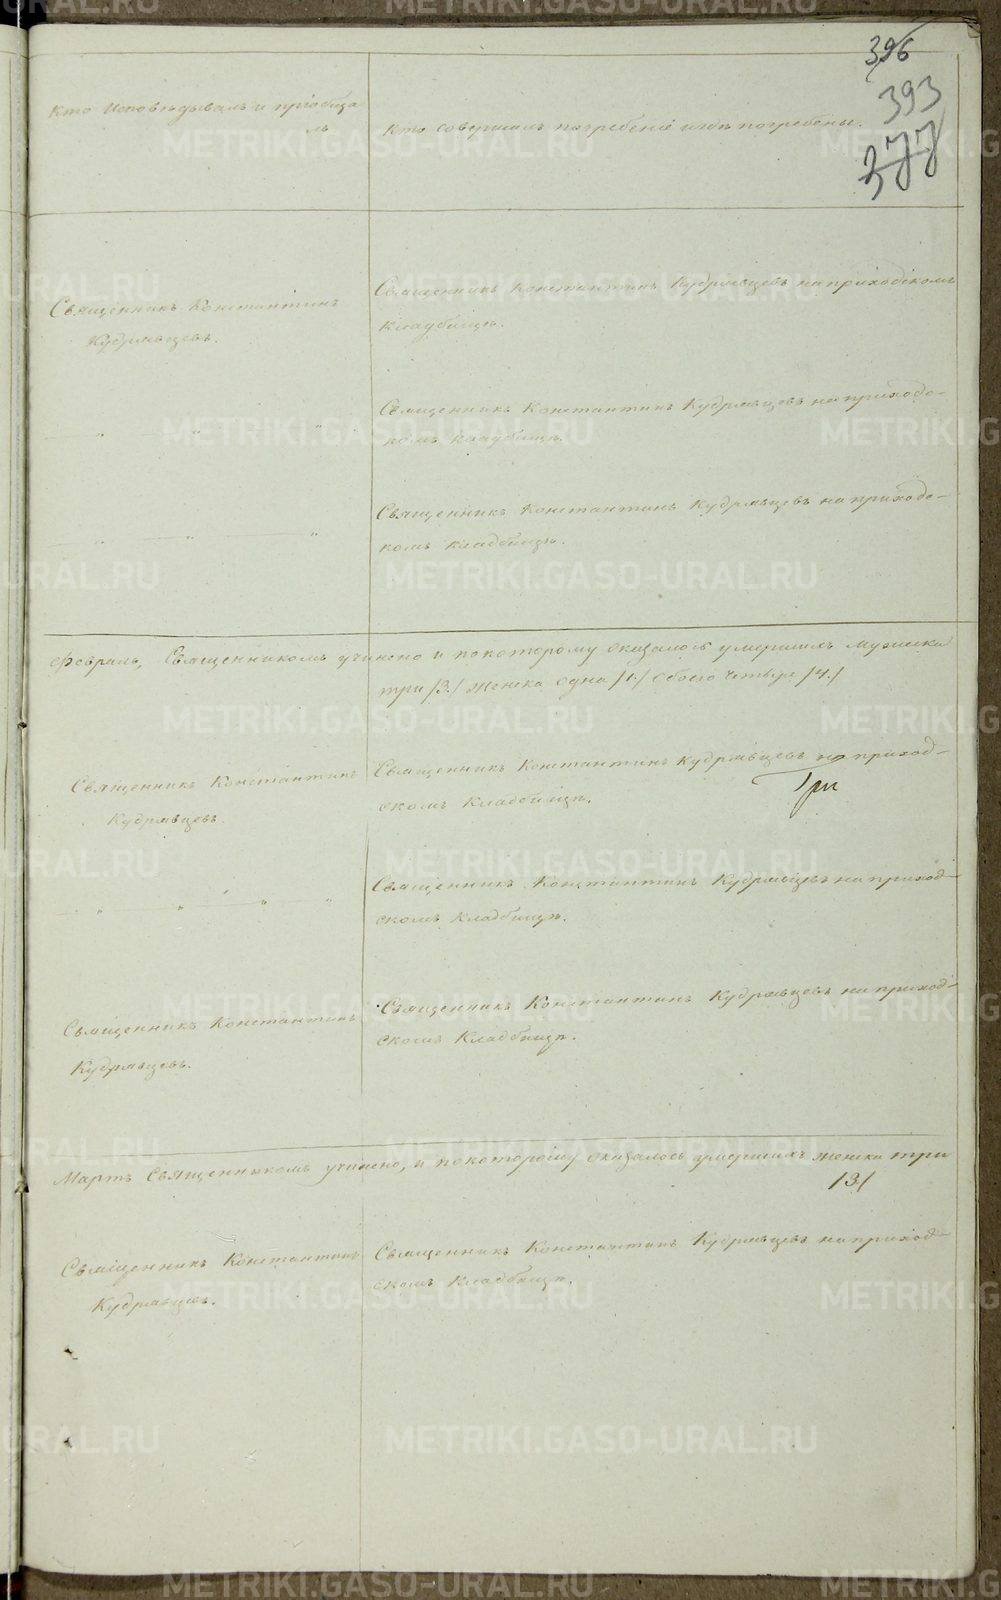 396
393
377
Кто Исповѣдывалъ и пріобща
лъ
Кто совершалъ погребеніе и гдѣ погребены.
Священникъ Константинъ
Кудрявцевъ.
Священникъ Константинъ Кудрявцевъ на приходскомъ
кладбищѣ.
Священникъ Константинъ Кудрявцевъ на приходс-
комъ кладбищѣ.
Священникъ Константинъ Кудрявцевъ на приходс-
комъ кладбищѣ.
Февраль, Священникомъ учинено и по которому оказалось умершихъ мужеска
три /3./ женска одна /1./ обоего четыре /4./
Священникъ Константинъ
Кудрявцевъ
Священникъ Константинъ Кудрявцевъ на приход-
скомъ Кладбищѣ.
Три
Священникъ Константинъ Кудрявцевъ на приход-
скомъ Кладбищѣ.
Священникъ Константинъ
Кудрявцевъ.
Священникъ Константинъ Кудрявцевъ на приход-
скомъ Кладбищѣ.
Мартъ Священникомъ учинено, и по которому оказалось умершихъ женска три
/3/
Священникъ Константинъ
Кудрявцевъ.
Священникъ Константинъ Кудрявцевъ на приход-
скомъ Кладбищѣ.
METRIKI.GASO-URAL.RU